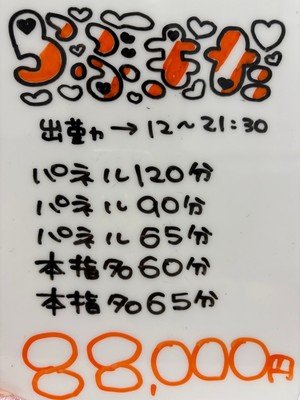 出勤→12〜21:30
パネル120分
パネル90分
パネル65分
本指名60分
本指名65分
88,000円